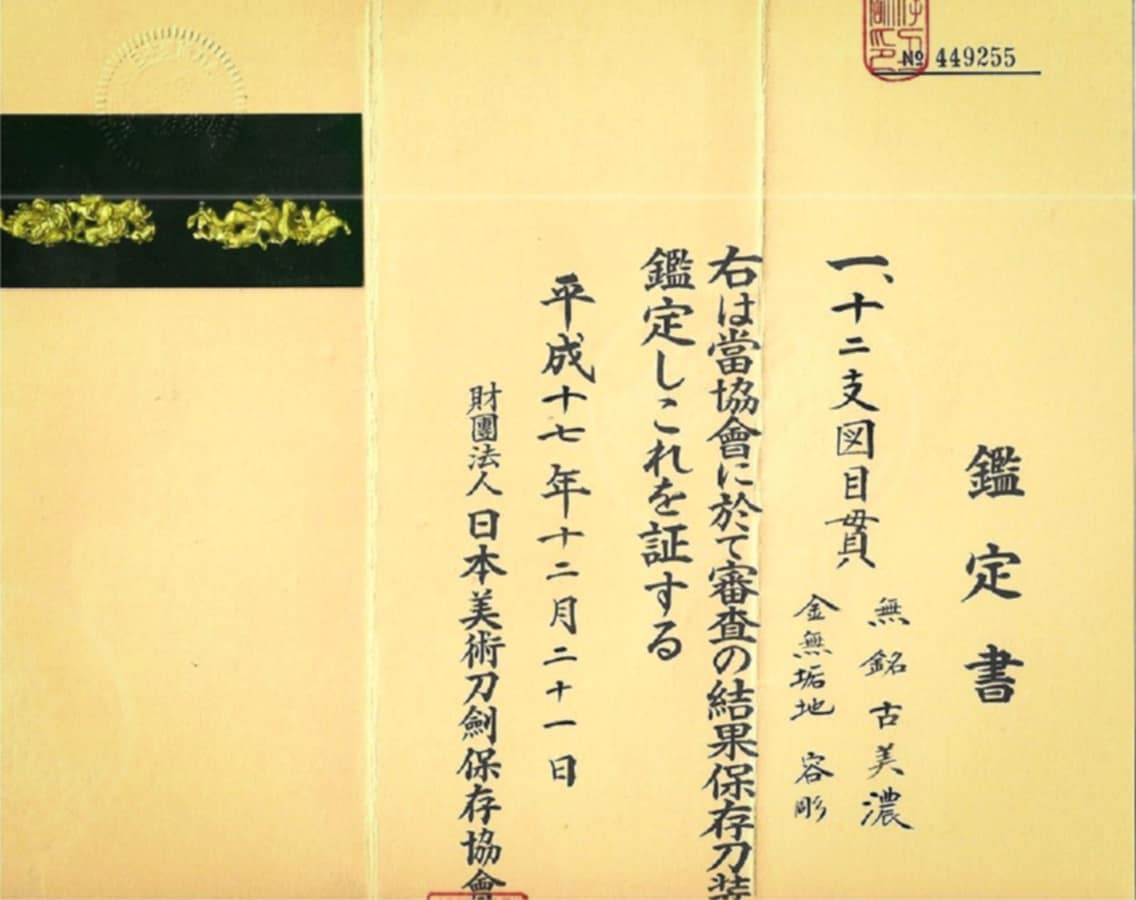 № 449255
鑑定書
一、十二支図目貫
無銘 古美濃
金無垢地 容彫
右は當協會に於て審査の結果保存刀装
鑑定しこれを証する
平成十七年十二月二十一日
財團法人日本美術刀劍保存協會